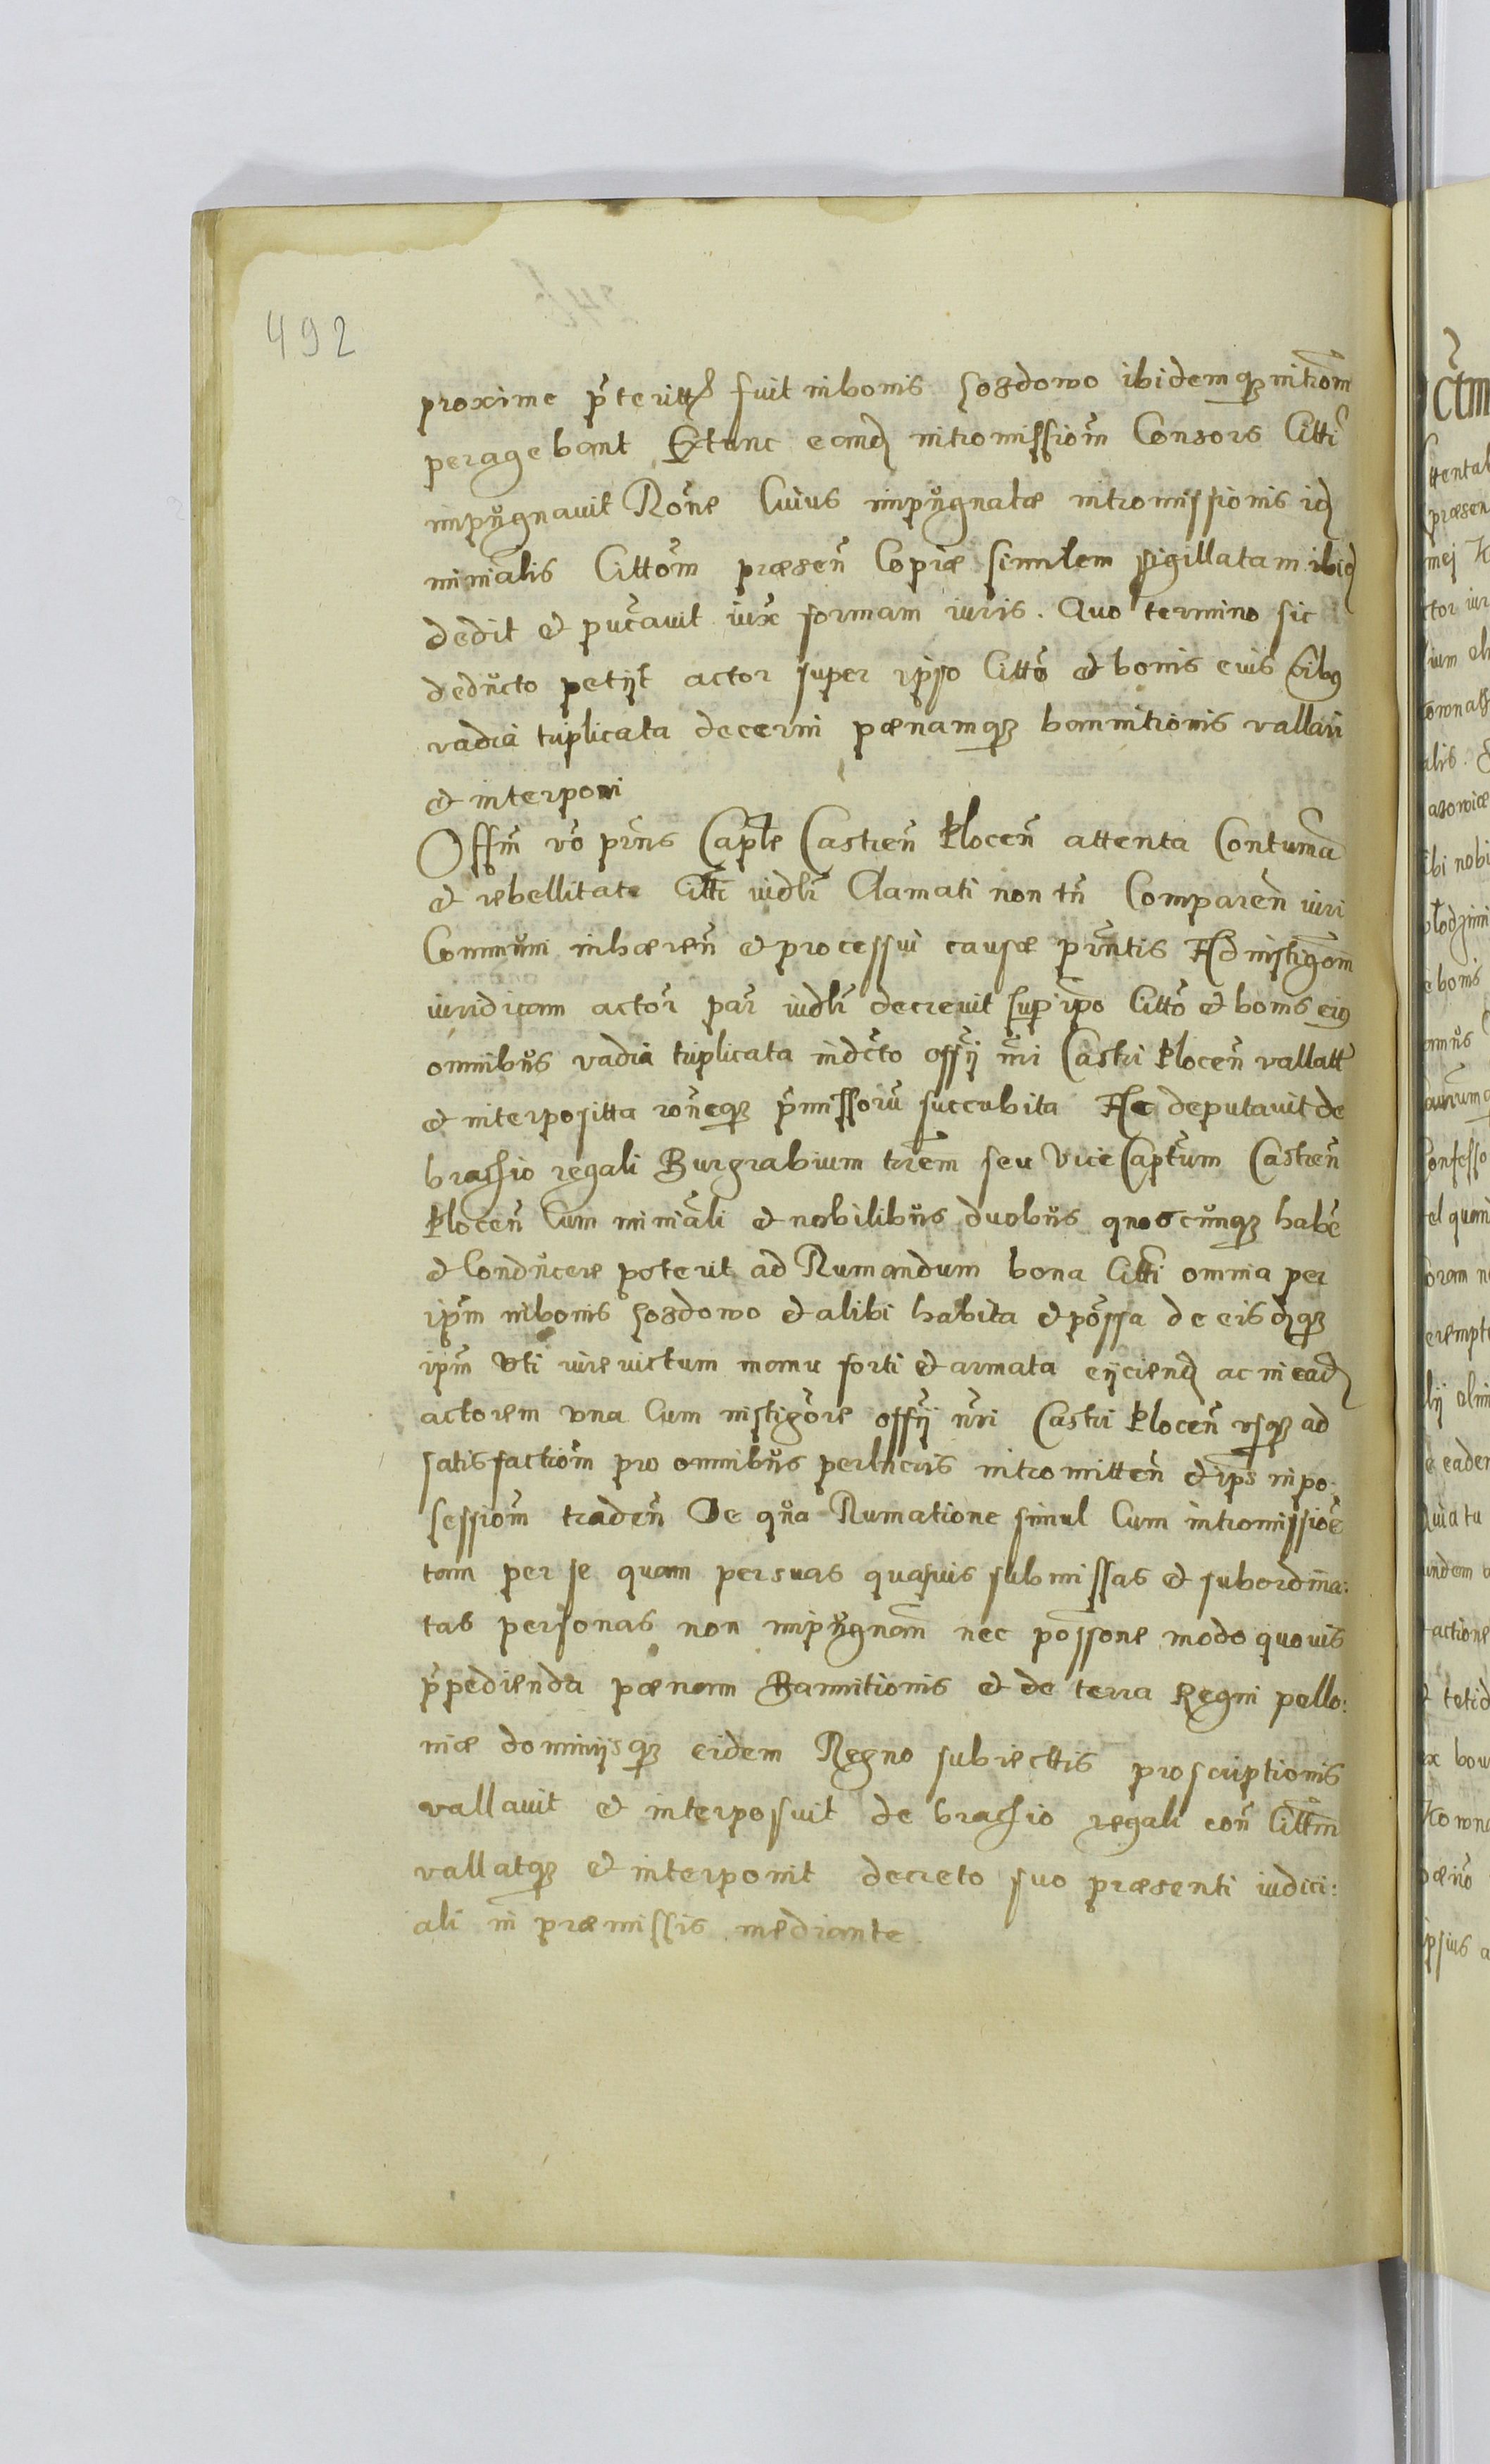 492
proxime p̃teritt fuit in bonis Gozdowo ibidemqȝ intrõm
peragebant Extunc eamd intromissiõm Consors Citti
impugnavit Rõne Cuius impugnatæ intromissionis id
miniãlis Cittõm præsen̄ Copiæ similem sigillatam ibid
dedit et puc̃avit iux̃ formam iuris. Quo termino sic
deducto petijt actor super ipso Citto et bonis eius
vadia triplicata decerni pœnamqȝ bannitionis vallari
et interponi
Offm̃ vo prñs Capłe Castren̄ Plocen̄ attenta Contumã
et rebellitate Citti iudłr Clamati non tñ Comparen̄ iuri
Communi inhæren̄ et processui causæ prñtis Ad instigõm
iuridicam actoř par iudłr decrevit sup ipo Citto et bonis eius
omnibus vadia triplicata indc̃to offij nri Castri Plocen̄ vallatt
et interpositta rõneqȝ p̃missorũ succubita Ac deputavit de
brachio regali Burgrabium trẽm seu Vice Captũm Castren̄
Plocen̄ Cum miniãli et nobilibus duobus quoscunqȝ habẽ
et Conducere poterit ad Rumandum bona Citti omnia per
ipm̃ in bonis Gozdowo et alibi habita et põssa de eisdqȝ
ipm̃ uti iure victum manu forti et armata eijciend ac in ead
actorem una Cum instigõre offij nri Castri Plocen̄ usqȝ ad
satisfactiõm pro omnibus perlucris intromitten̄ et ips in po
sessiõm traden̄ De qua Rumatione simul Cum intromissiõe
tam per se quam per suas quasvis submissas et subordina:
tas personas non impugnañ nec põssone modo quovis
p̃pedienda pœnam Bannitionis et de terra Regni pollo:
niæ dominijsqȝ eidem Regno subiecttis proscriptionis
vallavit et interposuit de brachio regali con̄ Cittm̃
vallatqȝ et interponit decreto suo præsenti iudici:
ali in præmissis mediante.